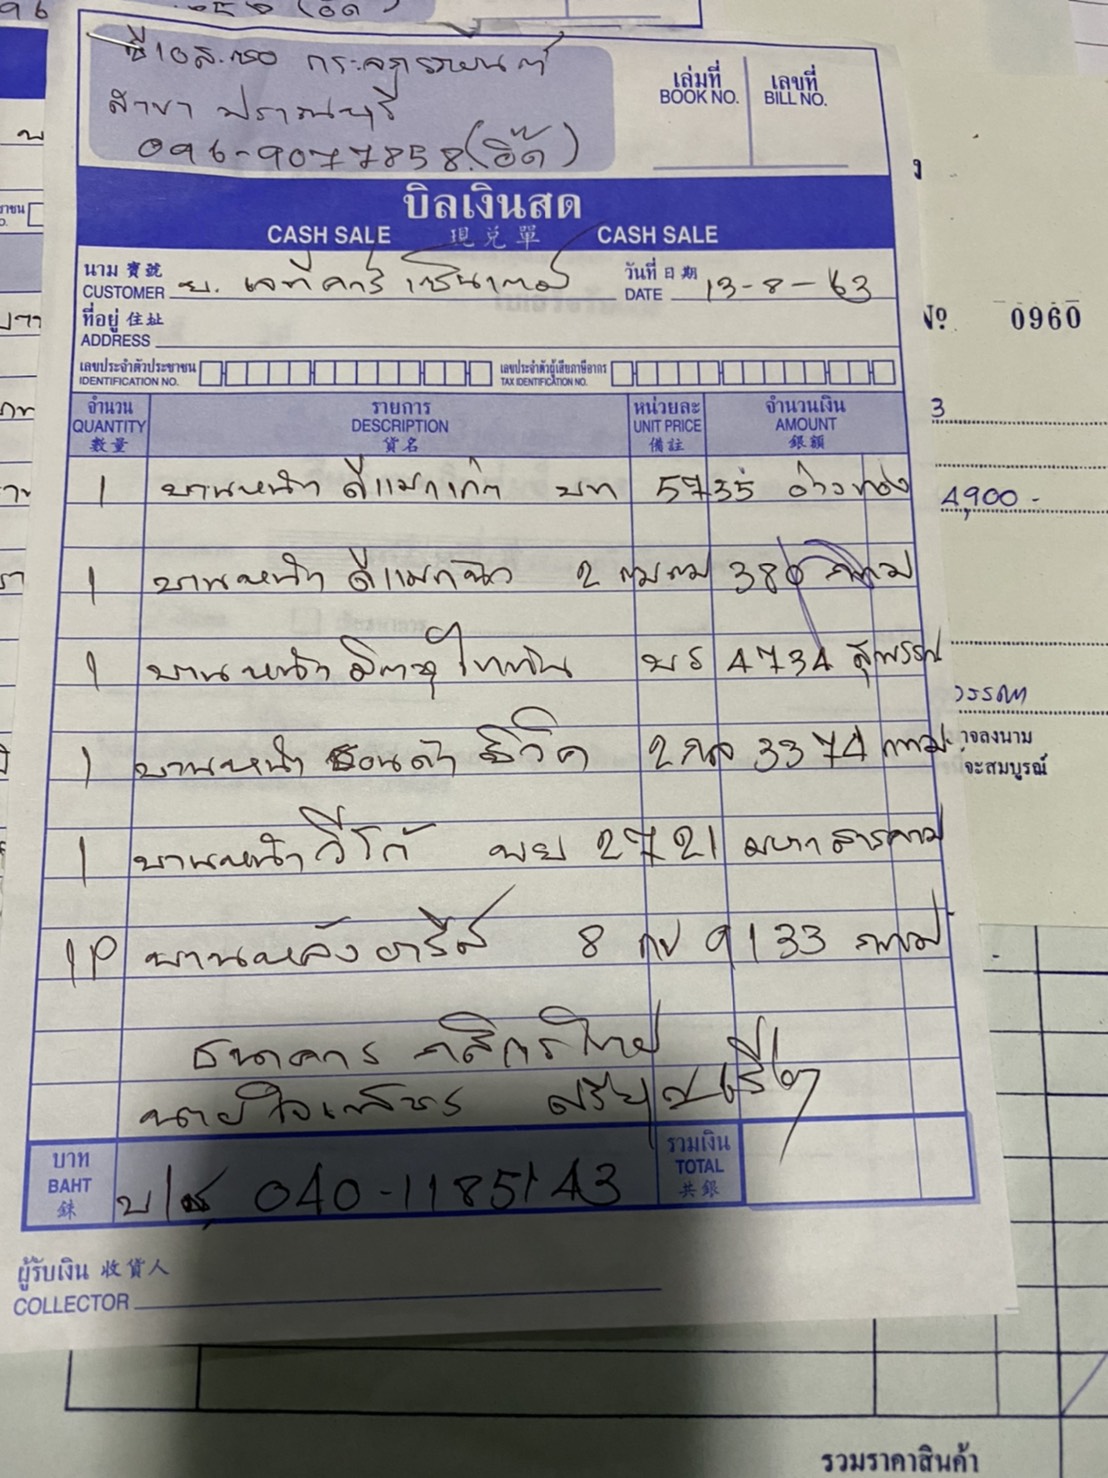 กระจกรถยนต์
สาขา ปราณบุรี
096-9077858 (อี๊ด)
เล่มที่
BOOK NO.
เลขที่
BILL NO.
บิลเงินสด
CASH SALE 現兌單 CASH SALE
นาม 寶號
CUSTOMER บ.
วันที่ 日期
DATE 13-8-63
ที่อยู่ 住址
ADDRESS
เลขประจำตัวประชาชน
IDENTIFICATION NO.
เลขประจำตัวผู้เสียภาษีอากร
TAX IDENTIFICATION NO.
จำนวน
QUANTITY
數量
รายการ
DESCRIPTION
貨名
หน่วยละ
UNIT PRICE
備註
จำนวนเงิน
AMOUNT
銀額
1 บานหน้า ดีแมกเก่า บท 5735 อ่างทอง
1 บานหน้า ดีแมกนิว 2 ฒฒ 380 กทม
1 บานหน้า มิตซูไททัน บร 4734 สุพรรณ
1 บานหน้า ฮอนด้า ซีวิค 2กล 3374 กทม
1 บานหน้า วีโก้ บย 2721 มหาสารคาม
1P บานหลัง ยารีส 8 กข 9133 กทม
ธนาคาร กสิกรไทย
นาย
บาท
BAHT
銖
บ/ช 040-1185143
รวมเงิน
TOTAL
共銀
ผู้รับเงิน 收貨人
COLLECTOR
Nº 0960
3
4,900 -
จะสมบูรณ์
รวมราคาสินค้า